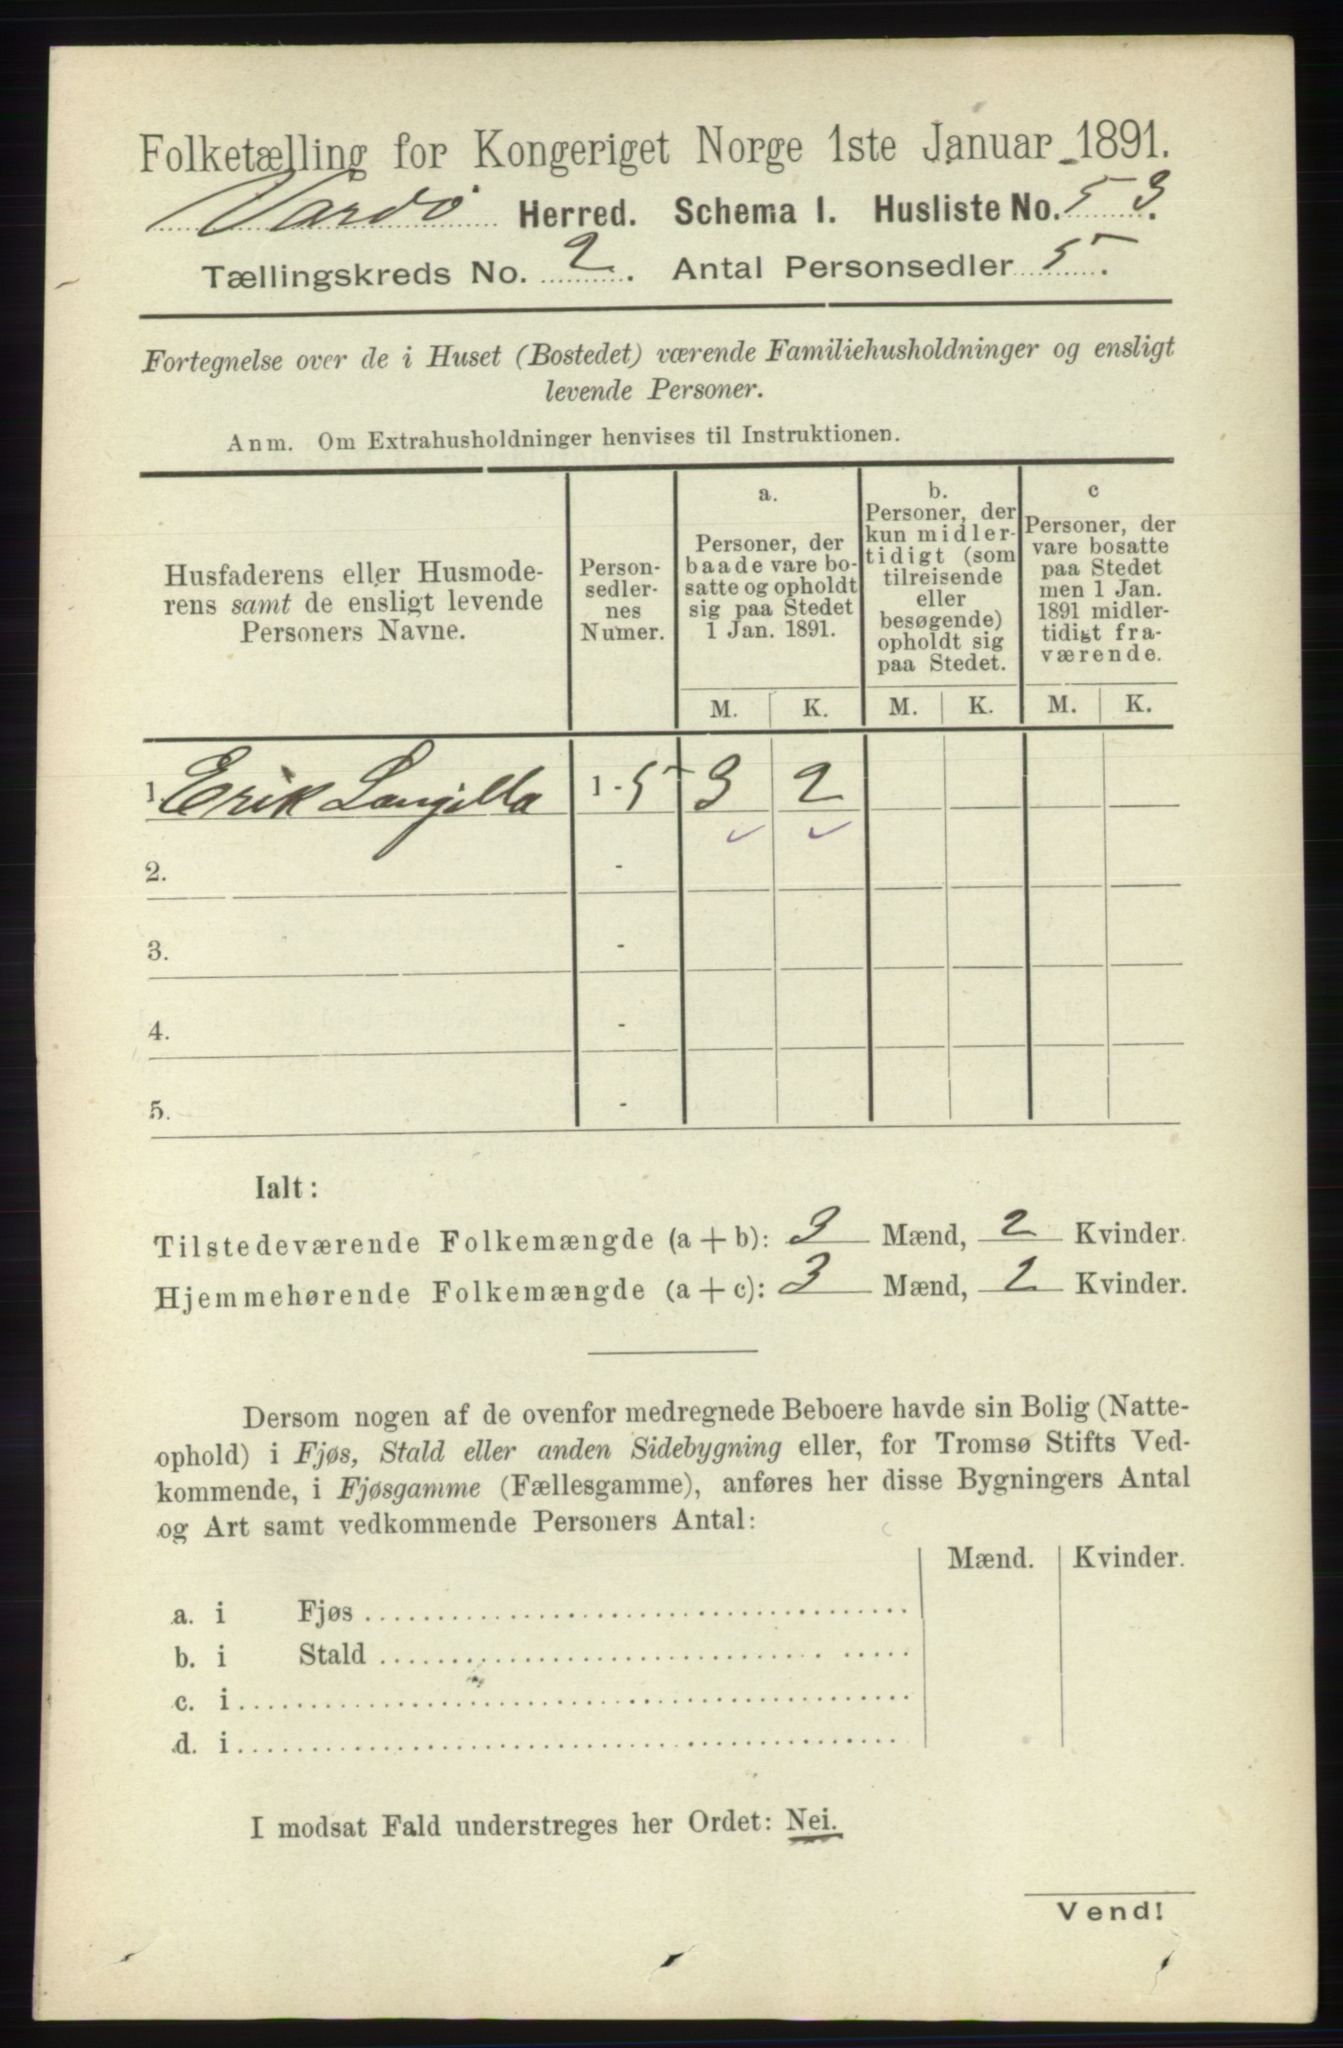 Folketælling for Kongeriget Norge 1ste Januar 1891.
Vardø Herred. Schema I. Husliste No. 53.
Tællingskreds No. 2. Antal Personsedler 5.
Fortegnelse over de i Huset (Bostedet) værende Familiehusholdninger og ensligt
levende Personer.
Anm. Om Extrahusholdninger henvises til Instruktionen.
Husfaderens eller Husmode-
rens samt de ensligt levende
Personers Navne.
Person-
sedler-
nes
Numer.
a.
Personer, der
baade vare bo-
satte og opholdt
sig paa Stedet
1 Jan. 1891.
b.
Personer, der
kun midler-
tidigt (som
tilreisende
eller
besøgende)
opholdt sig
paa Stedet.
c
Personer, der
vare bosatte
paa Stedet
men 1 Jan.
1891 midler-
tidigt fra-
værende.
M. K. M. K. M. K.
1 Erik Langilla 1-5 3 2
2. -
3. -
4. -
5. -
Ialt:
Tilstedeværende Folkemængde (a+b): 3 Mænd, 2 Kvinder.
Hjemmehørende Folkemængde (a+c): 3 Mænd, 2 Kvinder.
Dersom nogen af de ovenfor medregnede Beboere havde sin Bolig (Natte-
ophold) i Fjøs, Stald eller anden Sidebygning eller, for Tromsø Stifts Ved-
kommende, i Fjøsgamme (Fællesgamme), anføres her disse Bygningers Antal
og Art samt vedkommende Personers Antal:
Mænd. Kvinder.
a. i Fjøs
b. i Stald
c. i
d. i
I modsat Fald understreges her Ordet: Nei.
Vend!